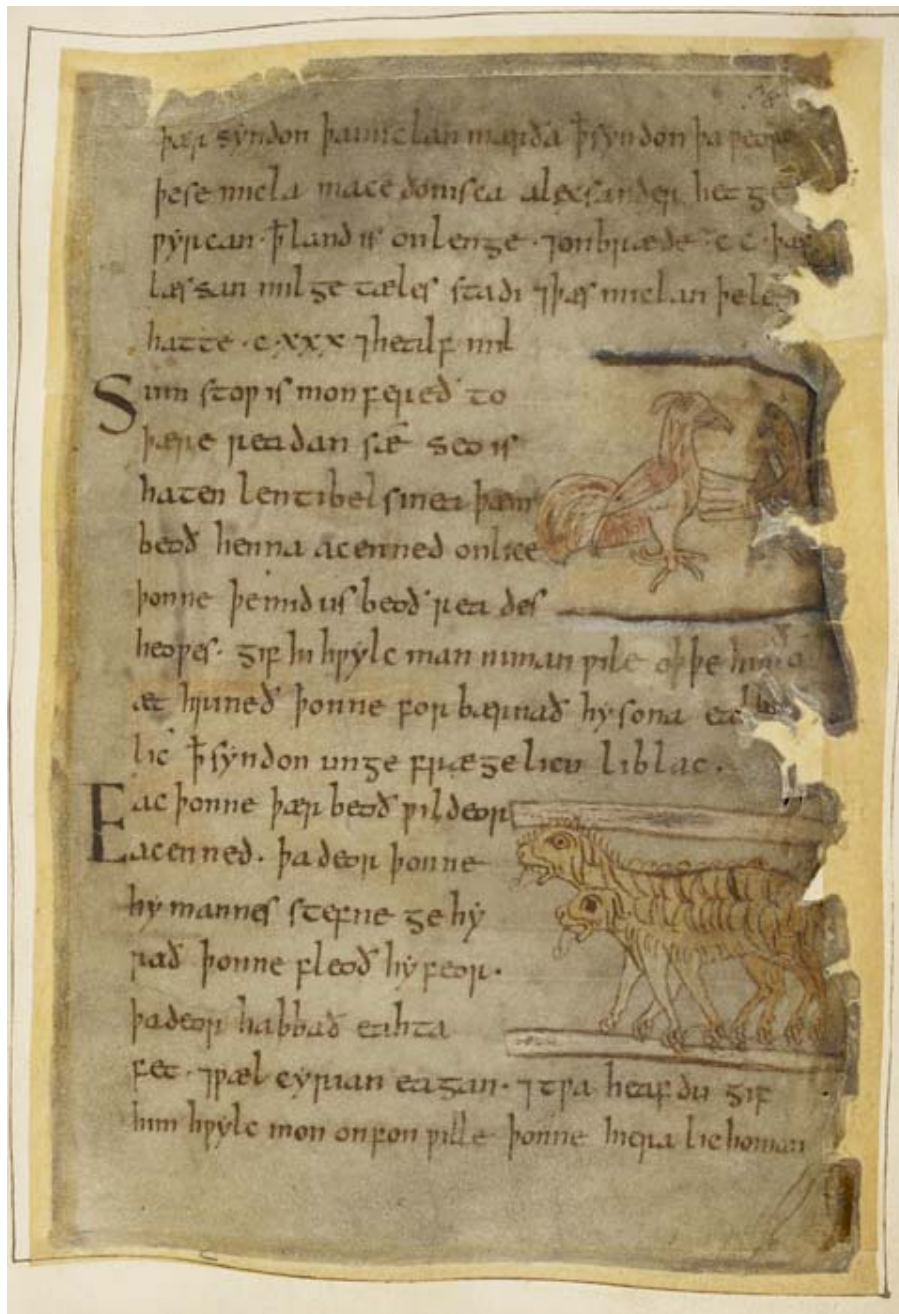 þær syndon þa miclan mærða ꝥ syndon þa ƿeorc
þe se micla macedonisca alecsander het ge
ƿyrcan · ꝥ land is on lenge · ⁊ on bræde · cc · þæs
læssan milgetæles stadi ⁊ þæs miclan þe leuua
hatte · c · xxx ⁊ healf mil
Sum stoƿ is mon fereð to
þære readan sæ seo is
haten lentibelsinea þær
beoð henna acenned onlice
þonne þe mid us beoð reades
heoƿes · gif hi hƿylc man niman ƿile oþþe hira o
æt hrineð þonne forbærnað hy sona eall his
lic ꝥ syndon ungefrægelicu liblac ·
Eac þonne þær beoð ƿildeor
acenned · þa deor þonne
hy mannes stefne gehy
rað þonne fleoð hy feor ·
þa deor habbað eahta
fet · ⁊ ƿælcyrian eagan · ⁊ tƿa heafdu gif
him hƿylc mon onfon ƿille þonne hiera lichoman